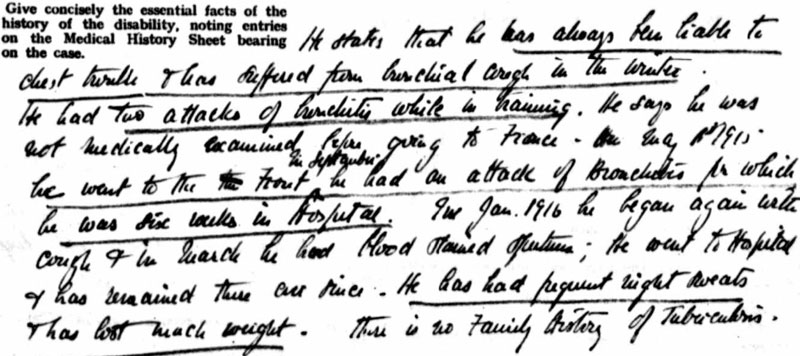 Give concisely the essential facts of the
history of the disability, noting entries
on the Medical History Sheet bearing
on the case.
He states that he has always been liable to
chest trouble & has suffered from bronchial cough in the winter.
He had two attacks of bronchitis while in training. He says he was
not medically examined before going to France - In May 1915
in September
he went to the Front he had an attack of Bronchitis for which
he was six weeks in Hospital. In Jan. 1916 he began again with
cough & in March he had blood stained sputum; He went to Hospital
& has remained there ever since. He has had frequent night sweats
& has lost much weight. There is no Family History of Tuberculosis.